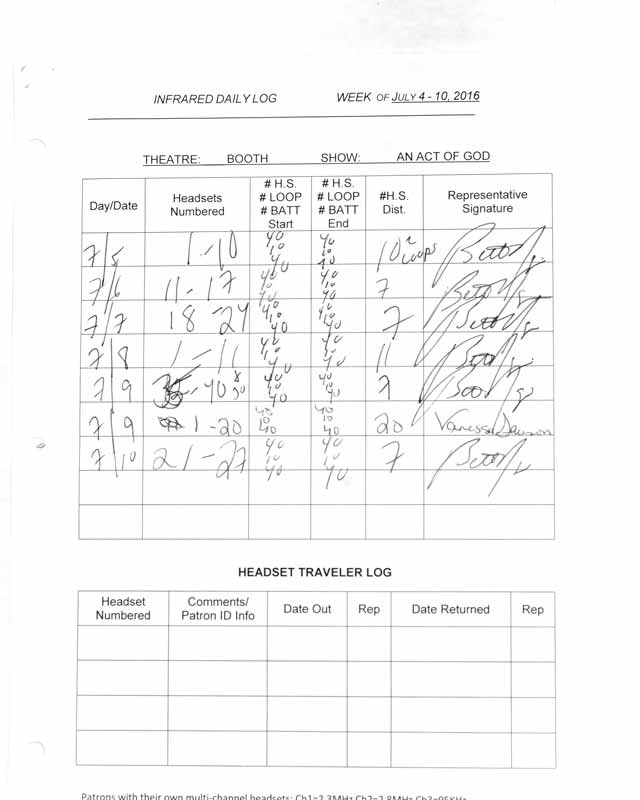 INFRARED DAILY LOG WEEK OF JULY 4 - 10, 2016
THEATRE: BOOTH SHOW: AN ACT OF GOD
Day/Date Headsets Numbered # H.S. # LOOP # BATT Start # H.S. # LOOP # BATT End #H.S. Dist. Representative Signature
7/5 1-10 40 10 40 40 10 40 10 2 Loops
7/6 11-17 40 10 40 40 10 40 7
7/7 18-24 40 10 40 40 10 40 7
7/8 1-11 40 10 40 40 10 40 11
7/9 -40 40 10 40 40 10 40 7
7/9 1-20 40 10 40 40 10 40 20 Vanessa Dawson
7/10 21-27 40 10 40 40 10 40 7
HEADSET TRAVELER LOG
Headset Numbered Comments/ Patron ID Info Date Out Rep Date Returned Rep
Patrons with their own multi-channel headsets: Ch1=2.3MHz Ch2=2.8MHz Ch3=95KHz